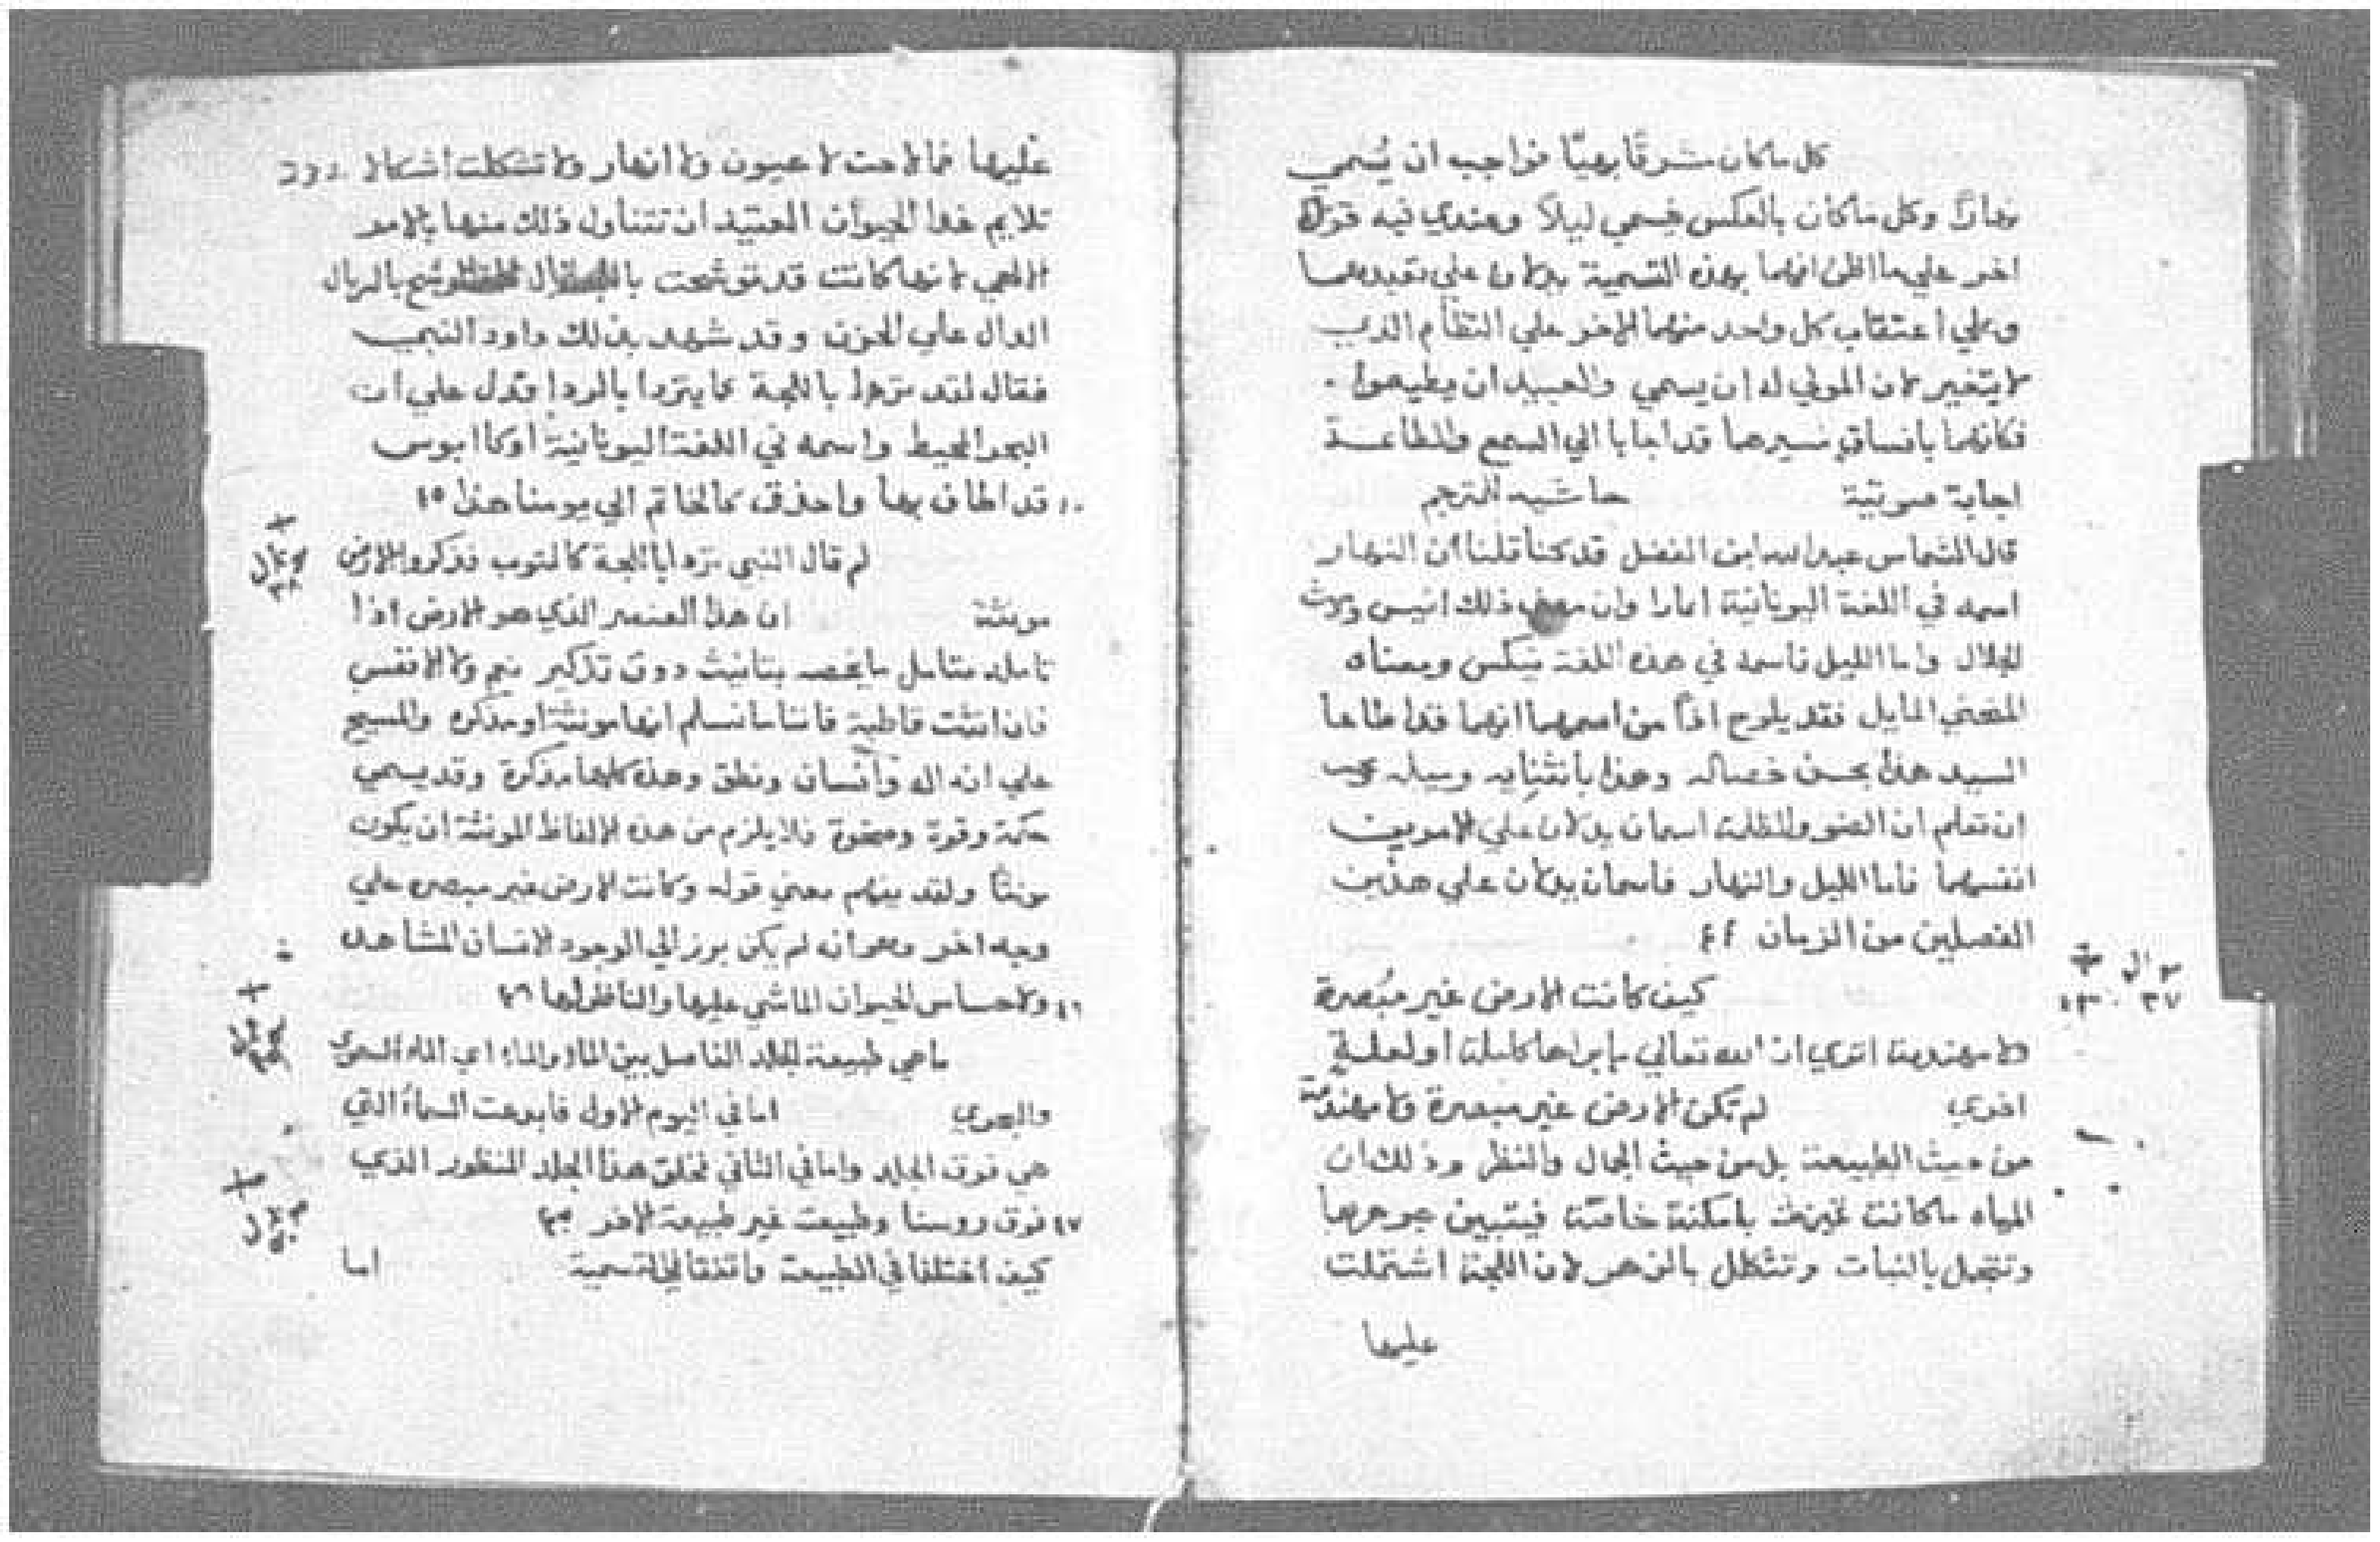 كل ماكان مشرقًا بهيًّا فواجب ان يُسمي
نهارًا وكل ماكان بالعكس فيسمي ليلاً وعندي فيه قول
اخر علي ما اظن انهما بهذه التسمية يدلان علي تعبدهما
وعلي اعتقاب كل واحد منهما للاخر علي النظام الذي
لا يتغير لان المولي له ان يسمي وللعبيد ان يطيعوا .
فكانهما باتساق سيرهما قد اجابا الي السمع والطاعة
اجابة صوتية حاشيه للمترجم
قال الشماس عبد الله ابن الفضل قد كنا قلنا ان النهار
اسمه في اللغة اليونانية امارا وان معني ذلك انيس
الجلال واما الليل فاسمه في هذه اللغة نيكس ومعناه
المنحني المايل فقد يلوح اذًا من اسمهما انهما قد اطاعا
السيد هذا بحسن خصاله وهذا بانثنايه وميله
ان تعلم ان الضو والظلمة اسمان يدلان علي الامرين
انفسهما فاما الليل والنهار فاسمان يدلان علي هذين
الفصلين من الزمان ٤٤
سوال ٣٧
كيف كانت الارض غير مُبصرة
ولا مهندمة اتري ان الله تعالي ما ابرزها كاملة او لعلةٍ
اخري لم تكن الارض غير مبصرة ولا مهندمة
من حيث الطبيعة بل من حيث الجمال والنظر وذلك ان
المياه ما كانت تميزت بامكنة خاصّة فيتبين جوهرها
وتتجمل بالنبات وتتكلل بالزهر لان اللجة اشتملت
عليها
عليها فما لاحت لا عيون ولا انهار ولا تشكلت اشكالا
تلايم غذا الحيوان العتيد ان تتناول ذلك منها بالامر
الالهي لانها كانت قد توشحت بالسربال
الدال علي الحزن وقد شهد بذلك داود النبي
فقال لقد تردا باللجة كما يتردا بالردا وتدل علي ان
البحر المحيط واسمه في اللغة اليونانية اوكاابوس
قد اطاف بها واحدق كالخاتم الي يومنا هذا ٤٥
سوال ٣٨
لم قال النبي تردا باللجة كالثوب فذكر والارض
مونثة ان هذا العنصر الذي هو الارض اذا
تامله متامل ما يخصه بتانيث دون تذكير نعم ولا الانفس
فان انثت قاطبة فاننا ما نسلم انها مونثة او مذكره والمسيح
علي انه اله وانسان ونطق وهذه كلها مذكرة وقد يسمي
حكمة وقوة وصخرة فلا يلزم من هذه الالفاظ المونثة ان يكون
مونثًا ولقد يفهم معني قوله وكانت الارض غير مبصره علي
وجه اخر وهو انه لم يكن برز الي الوجود الانسان المشاهد
ولا حساس الحيوان الماشي عليها والناظر لها ٤٦
سوال ٣٩
ماهي طبيعة الجلد الفاصل بين الماء والماء اي الماء السموي
والجوي اما في اليوم الاول فابدعت السماء التي
هي فوق الجلد واما في الثاني فخلق هذا الجلد المنظور الذي
٤٧ فوق روسنا وطبيعته غير طبيعة الاخر
كيف اختلفا في الطبيعة واتفقا في التسمية اما